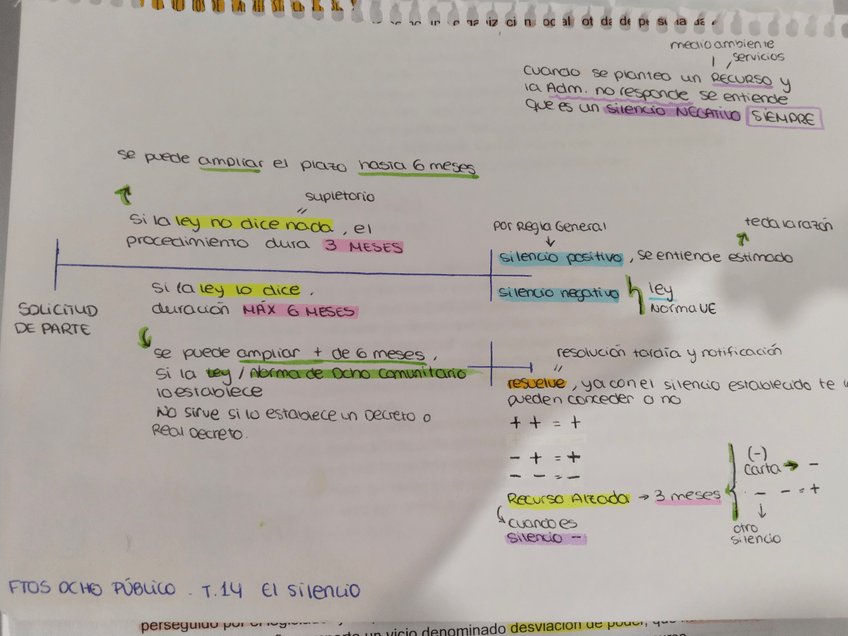 medio ambiente
servicios
cuando se plantea un RECURSO y
la Adm. no responde se entiende
que es un silencio NEGATIVO SIEMPRE
se puede ampliar el plazo hasta 6 meses
supletorio
si la ley no dice nada, el
procedimiento dura 3 MESES
por Regla General
te da la razón
silencio positivo, se entiende estimado
silencio negativo
ley
Norma UE
SOLICITUD
DE PARTE
si la ley lo dice,
duración MÁX 6 MESES
se puede ampliar + de 6 meses,
si la ley / Norma de Dcho comunitario
lo establece
No sirve si lo establece un Decreto o
Real Decreto.
resolución tardía y notificación
resuelve, ya con el silencio establecido te
pueden conceder o no
+ + = +
- + = +
- - = -
Recurso Alzada → 3 meses
cuando es
silencio -
(-)
carta → -
- - = +
otro
silencio
FTOS DCHO PÚBLICO . T.14 El silencio
perseguido por el
un vicio denominado desviación de poder, que